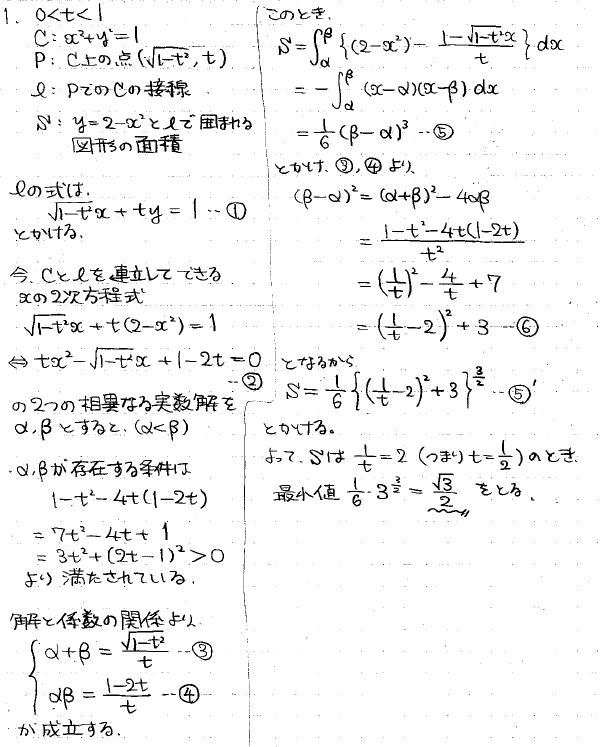 1. 0<t<1
C: x²+y²=1
P: C上の点(√(1-t²), t)
ℓ: PでのCの接線
S: y=2-x²とℓで囲まれる
図形の面積
ℓの式は、
√(1-t²)x + ty = 1 …①
とかける.
今、Cとℓを連立してできる
xの2次方程式
√(1-t²)x + t(2-x²) = 1
⇔ tx² - √(1-t²)x + 1-2t = 0
…②
の2つの相異なる実数解を
α, βとすると、(α<β)
α, βが存在する条件は
1-t²-4t(1-2t)
= 7t²-4t+1
= 3t²+(2t-1)² > 0
より満たされている.
解と係数の関係より
{ α+β = √(1-t²)/t …③
αβ = (1-2t)/t …④
が成立する.
このとき.
S = ∫_α^β {(2-x²) - (1-√(1-t²)x)/t} dx
= -∫_α^β (x-α)(x-β) dx
= 1/6 (β-α)³ …⑤
とかけ、③, ④より
(β-α)² = (α+β)² - 4αβ
= (1-t²-4t(1-2t))/t²
= (1/t)² - 4/t + 7
= (1/t - 2)² + 3 …⑥
となるから
S = 1/6 {(1/t - 2)² + 3}^(3/2) …⑤'
とかける。
よって、Sは 1/t = 2 (つまり t = 1/2) のとき
最小値 1/6・3^(3/2) = √3/2 をとる.